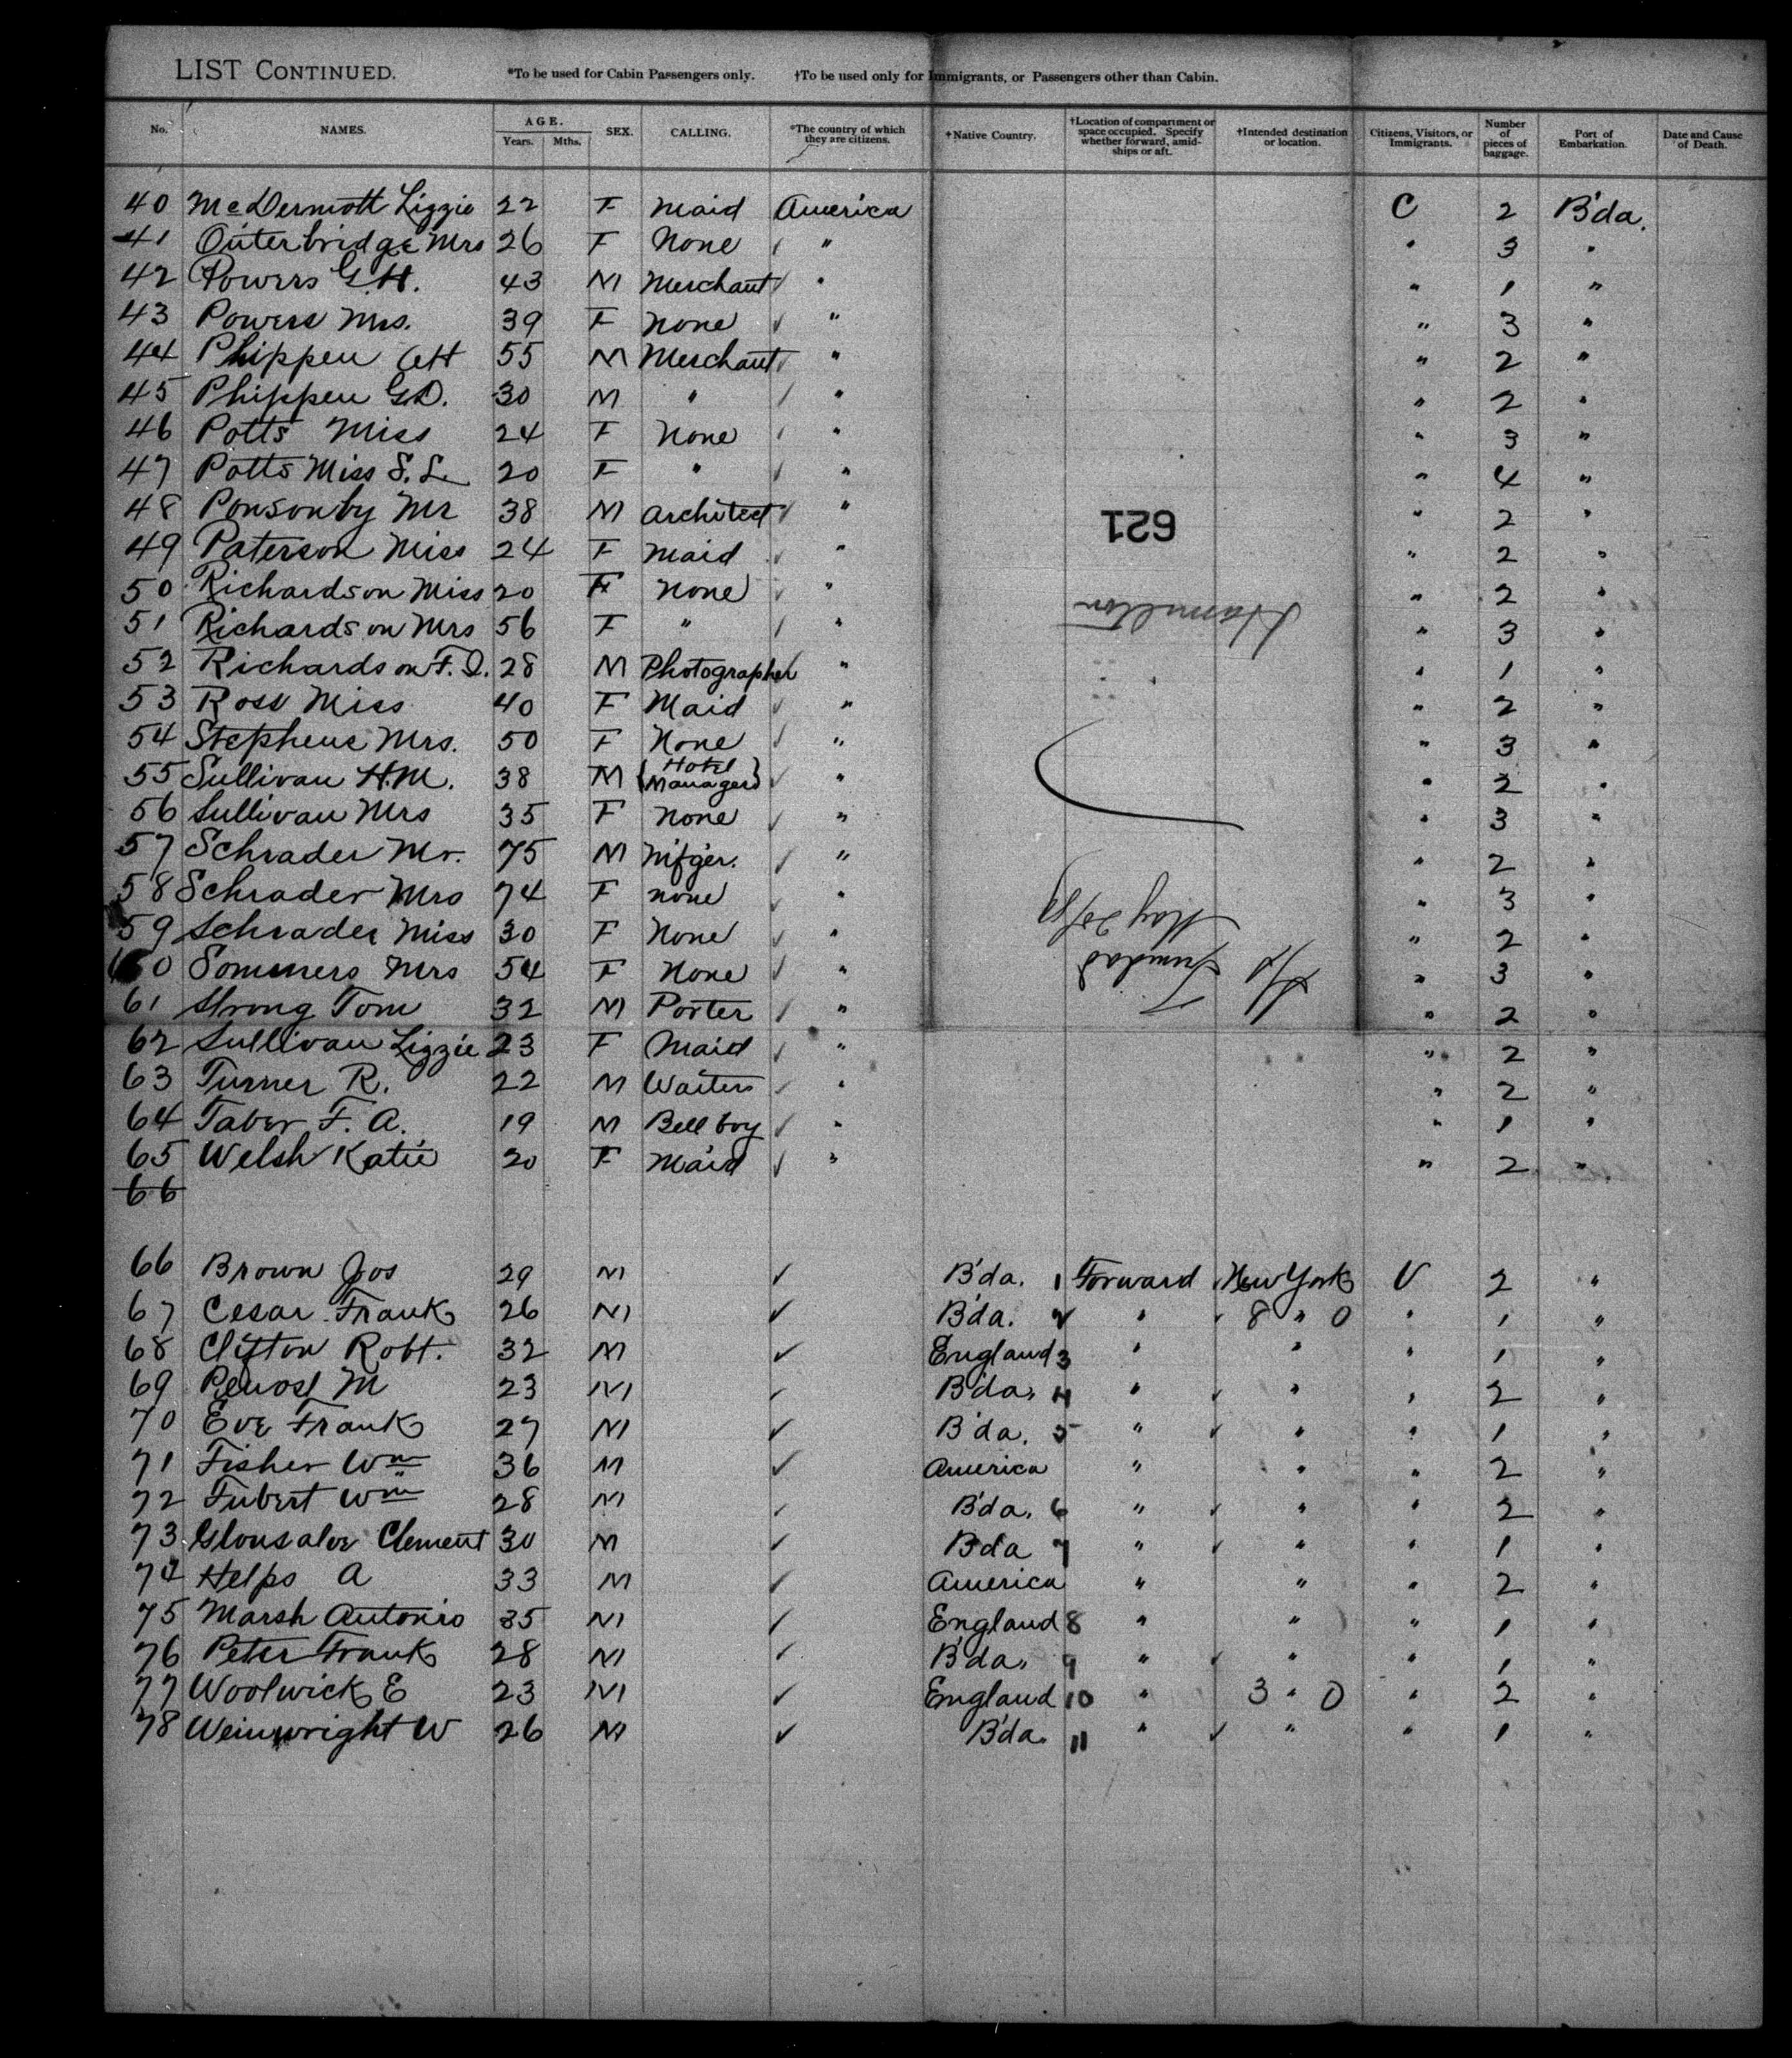 LIST CONTINUED. *To be used for Cabin Passengers only. †To be used only for Immigrants, or Passengers other than Cabin.
No. NAMES. AGE. Years. Mths. SEX. CALLING. *The country of which they are citizens. †Native Country. †Location of compartment or space occupied. Specify whether forward, amidships or aft. †Intended destination or location. Citizens, Visitors, or Immigrants. Number of pieces of baggage. Port of Embarkation. Date and Cause of Death.
40 McDermott Lizzie 22 F Maid America C 2 B'da.
41 Outerbridge Mrs 26 F None " " 3 "
42 Powers G.H. 43 M Merchant " " 1 "
43 Powers Mrs. 39 F None " " 3 "
44 Phippen 55 M Merchant " " 2 "
45 Phippen G.D. 30 M " " " 2 "
46 Potts Miss 24 F None " " 3 "
47 Potts Miss S. L. 20 F " " " 4 "
48 Ponsonby Mr 38 M Architect " " 2 "
621
49 Paterson Miss 24 F Maid " " 2 "
50 Richardson Miss 20 F None " " 2 "
Hamilton
51 Richardson Mrs 56 F " " " 3 "
52 Richardson F. D. 28 M Photographer " " 1 "
53 Ross Miss 40 F Maid " " 2 "
54 Stephens Mrs. 50 F None " " 3 "
55 Sullivan H.M. 38 M {Hotel Manager} " " 2 "
56 Sullivan Mrs 35 F None " " 3 "
57 Schrader Mr. 75 M Mfger. " " 2 "
58 Schrader Mrs 74 F none " " 3 "
May 20/89
59 Schrader Miss 30 F None " " 2 "
Trinidad
60 Sommers Mrs 54 F None " " 3 "
61 Strong Tom 32 M Porter " " 2 "
62 Sullivan Lizzie 23 F Maid " " 2 "
63 Turner R. 22 M Waiter " " 2 "
64 Taber F. A. 19 M Bell boy " " 1 "
65 Welsh Katie 20 F Maid " " 2 "
66
66 Brown Jos 29 M B'da. 1 Forward New York V 2 "
67 Cesar Frank 26 M B'da. 2 " 8 " 0 " 1 "
68 Clifton Robt. 32 M England 3 " " " 1 "
69 M 23 M B'da. 4 " " " 2 "
70 Eve Frank 27 M B'da. 5 " " " 1 "
71 Fisher Wm 36 M America " " " 2 "
72 Fubert Wm 28 M B'da. 6 " " " 2 "
73 Gonsalve Clement 30 M B'da 7 " " " 1 "
74 Helps A 33 M America " " " 2 "
75 Marsh Antonio 35 M England 8 " " " 1 "
76 Peter Frank 28 M B'da. 9 " " " 1 "
77 Woolwick E 23 M England 10 " 3 " 0 " 2 "
78 Weinwright W 26 M B'da. 11 " " " 1 "